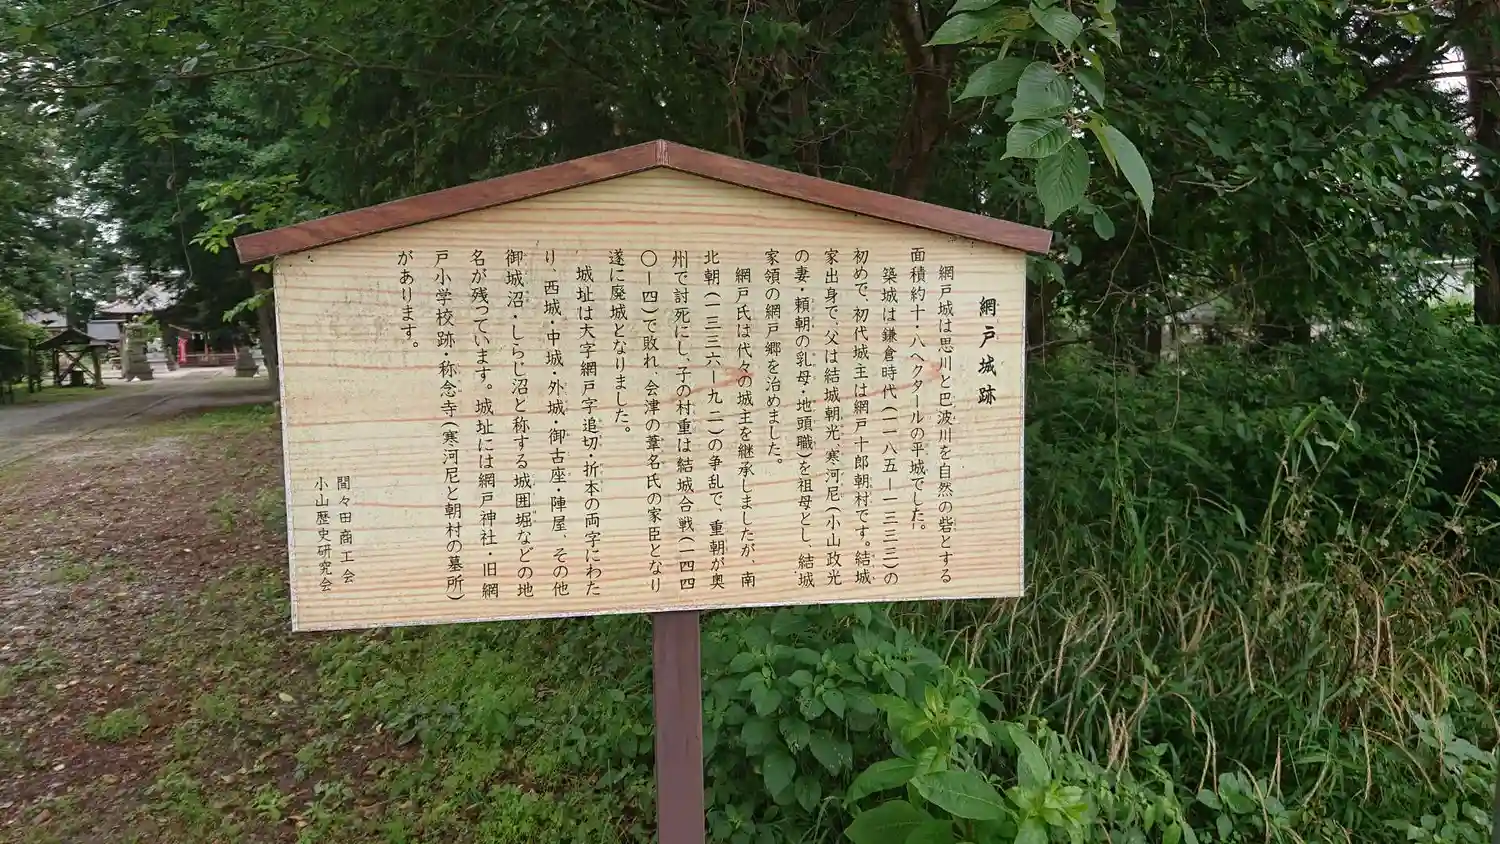 網戸城跡
網戸城は思川と巴波川を自然の砦とする
面積約十・八ヘクタールの平城でした。
築城は鎌倉時代(一一八五ー一三三三)の
初めで、初代城主は網戸十郎朝村です。結城
家出身で、父は結城朝光、寒河尼(小山政光
の妻・頼朝の乳母・地頭職)を祖母とし、結城
家領の網戸郷を治めました。
網戸氏は代々の城主を継承しましたが、南
北朝(一三三六ー九二)の争乱で、重朝が奥
州で討死にし、子の村重は結城合戦(一四四
〇ー四)で敗れ、会津の葦名氏の家臣となり
遂に廃城となりました。
城址は大字網戸字追切・折本の両字にわた
り、西城・中城・外城・御古座・陣屋、その他
御城沼・しらじ沼と称する城囲堀などの地
名が残っています。城址には網戸神社・旧網
戸小学校跡・称念寺(寒河尼と朝村の墓所)
があります。
間々田商工会
小山歴史研究会